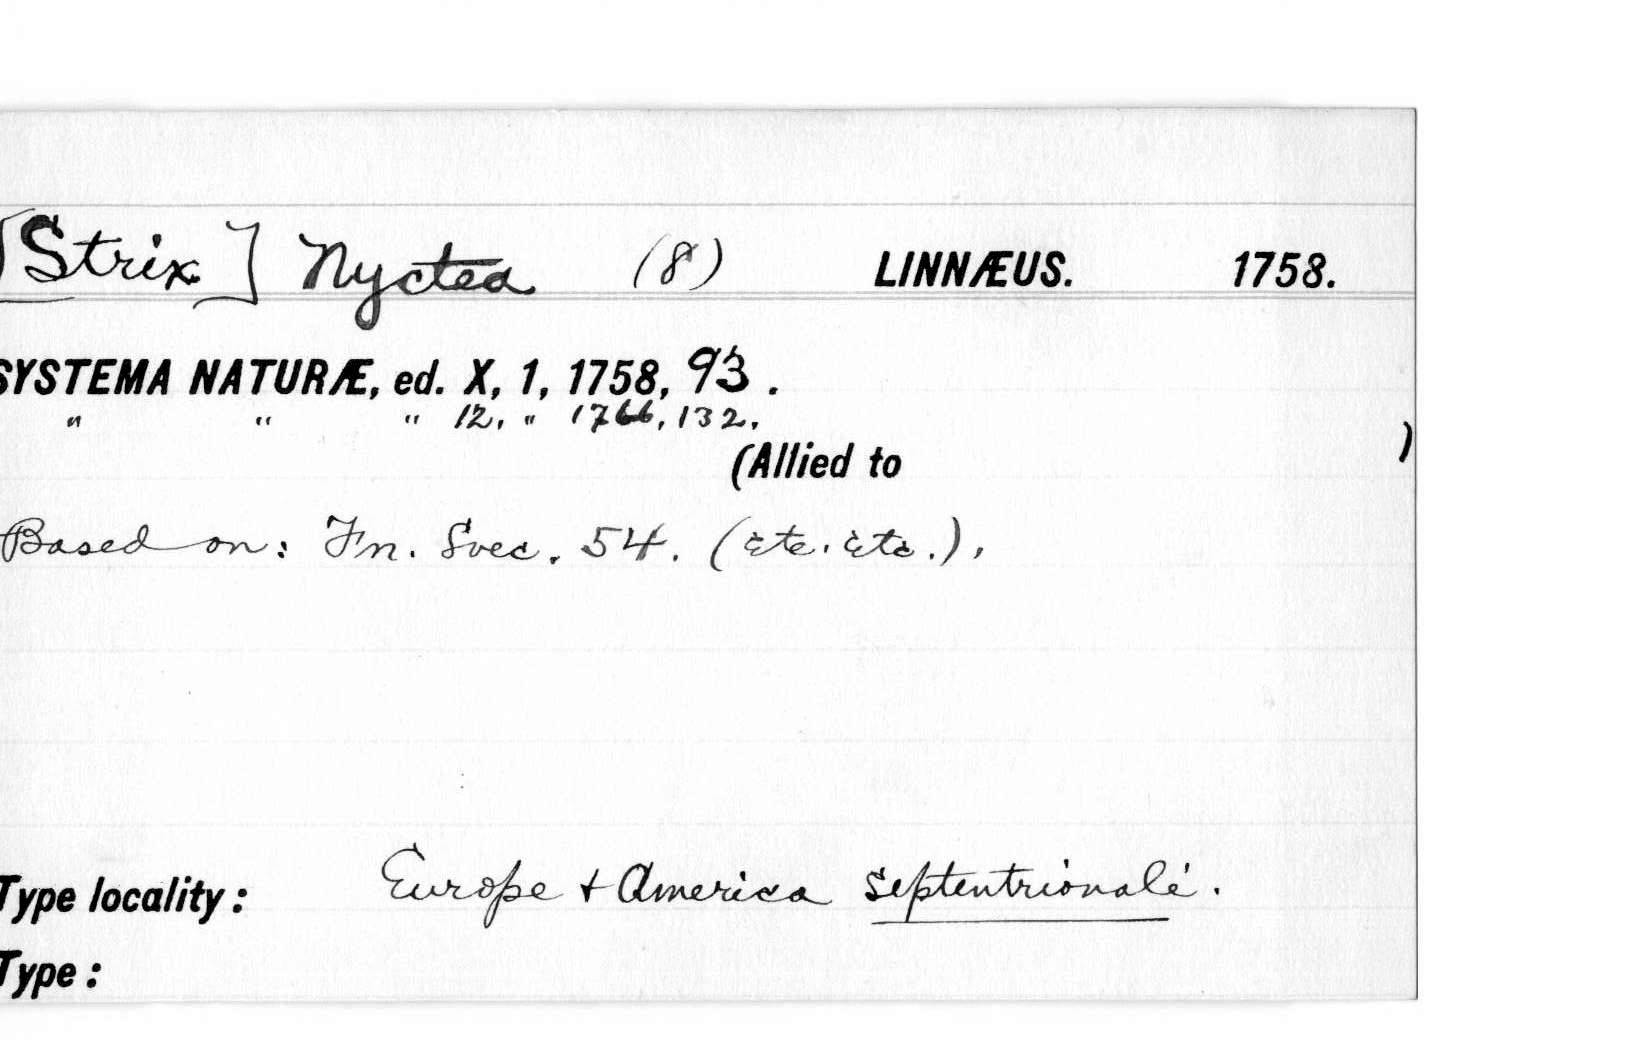 [Strix] Nyctea (8) LINNÆUS. 1758.
SYSTEMA NATURÆ, ed. X, 1, 1758, 93.
" " " 12, " 1766, 132.
(Allied to )
Based on: Fn. Svec. 54. (etc. etc.).
Type locality: Europe + America septentrionale.
Type: